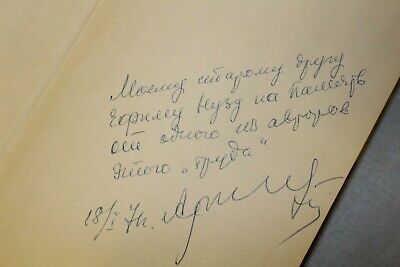 Моему старому другу
Ефиму Нузд на память
от одного из авторов
этого „труда“
18/I 71г.